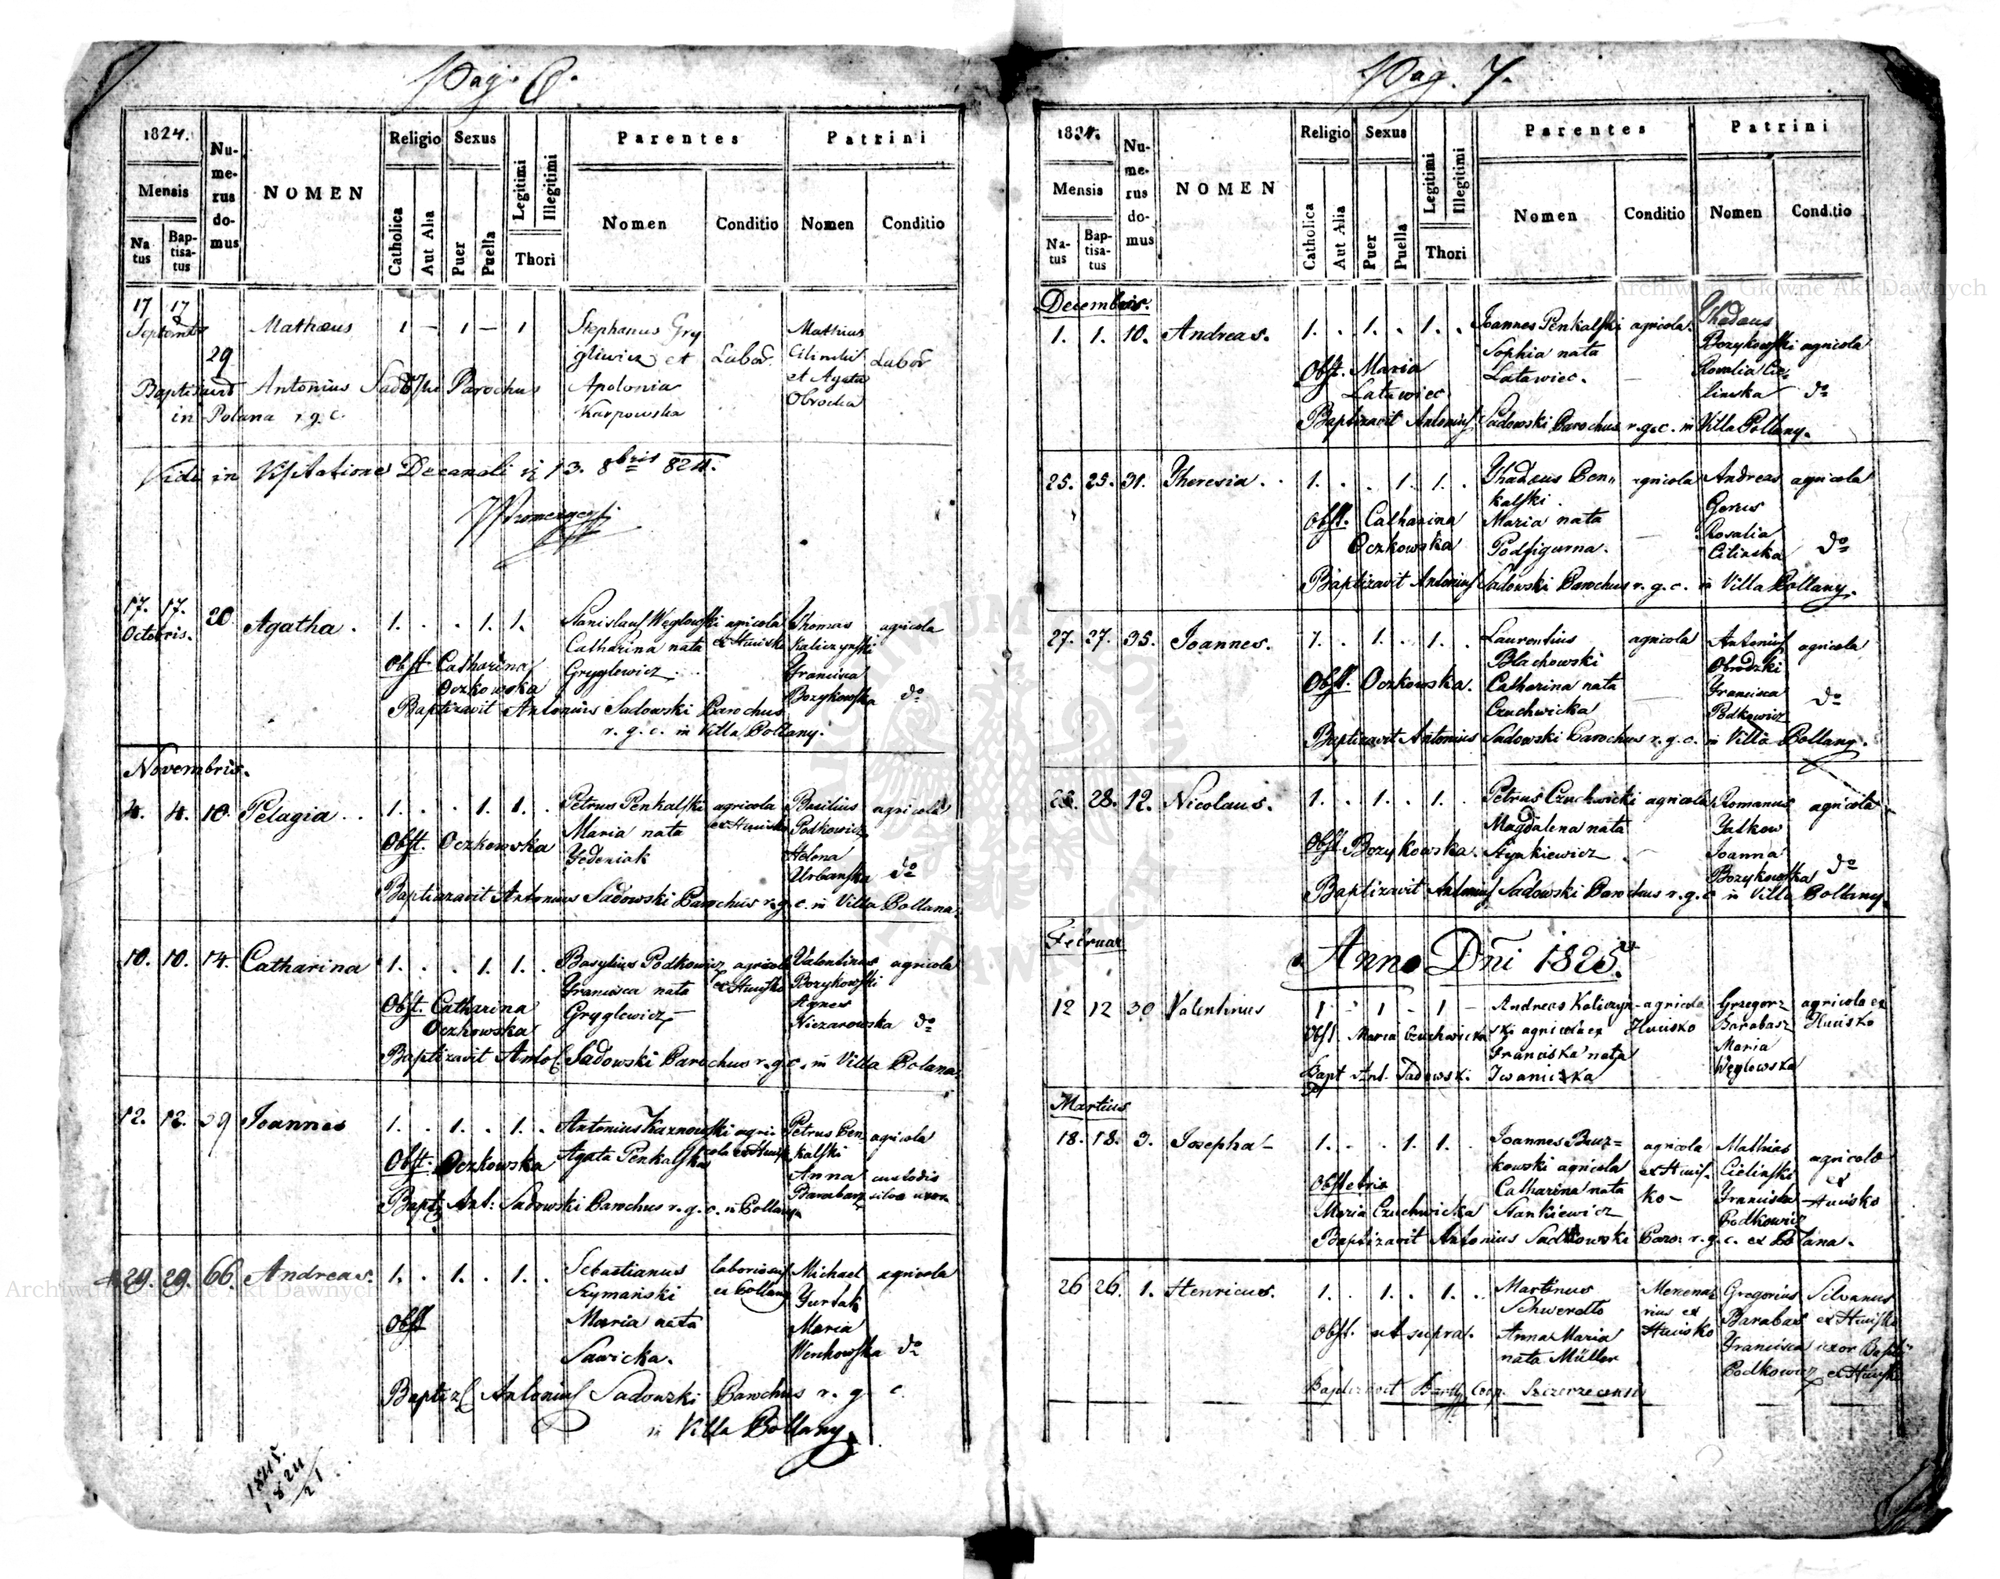 Pag. 6.
1824.
Mensis
Na
tus
Bap-
tisa-
tus
Nu-
me-
rus
do-
mus
NOMEN
Religio
Catholica
Aut Alia
Sexus
Puer
Puella
Legitimi
Illegitimi
Thori
Parentes
Nomen
Conditio
Patrini
Nomen
Conditio
17 17
29
Mathæus
1 — 1 — 1
Stephanus Gry
gliwicz et
Apolonia
Karpowska
Labor
Mathius
et Agata
Labor
Antonius Parochus
in Polana r. g. c.
Vidi in Decanali 13. 8bris 824.
17. 17.
Octobris.
20
Agatha.
1. . . 1. 1.
Stanislaus Węglowski agricola
Catharina nata
Gryglewicz
Thomas
Kaliczynski
Francisca
Bozykowska
agricola
do
Obst. Catharina
Oczkowska
Baptizavit Antonius Sadowski Parochus
r. g. c. in Villa Pollany.
Novembris.
4. 4. 10.
Pelagia . .
1. . . 1. 1. .
Petrus Penkalski agricola
Maria nata
Basilius
Podkowicz
Helena
Urbanska
agricola
do
Obst. Oczkowska
Baptizavit Antonius Sadowski Parochus r. g. c. in Villa Pollana.
10. 10. 14.
Catharina
1. . . 1. 1. .
Basylius Podkowicz agricola
Francisca nata
Gryglewicz
Valentinus
Bozykowski
Agnes
Niezarowska
agricola
do
Obst. Catharina
Oczkowska
Baptizavit Sadowski Parochus r. g. c. in Villa Polana.
12. 12. 39
Joannes
1. . 1. . 1. .
Antonius
Agata Penkalska
Petrus Pen
kalski
Anna
Barabasz
agricola
custodis
Obst. Oczkowska
Ant: Sadowski Parochus r. g. c.
29. 29. 66.
Andreas.
1. . 1. . 1. .
Sebastianus
Szymański
Maria nata
Sawicka.
Michael
Maria
agricola
do
Obst
Antonius Sadowski Parochus r. g. c.
in Villa Pollany.
1845.
1824
21
Pag. 7.
1824.
Mensis
Na-
tus
Bap-
tisa-
tus
Nu-
me-
rus
do-
mus
NOMEN
Religio
Catholica
Aut Alia
Sexus
Puer
Puella
Legitimi
Illegitimi
Thori
Parentes
Nomen
Conditio
Patrini
Nomen
Conditio
Decembris.
1. 1. 10.
Andreas.
1. . 1. . 1. .
Joannes Penkalski agricola.
Sophia nata
Latawiec.
Thadæus
Bozykowski agricola
Rosalia Cie-
linska
do
Obst. Maria
Latawiec
Baptizavit Antonius Sadowski Parochus r. g. c. in Villa Pollany.
25. 25. 31.
Theresia . .
1. . . 1. 1. .
Thadæus Pen
kalski
Maria nata
Podfigurna.
agricola
Andreas
Rosalia
Cilinska
agricola
do
Obst. Catharina
Oczkowska
Baptizavit Antonius Sadowski Parochus r. g. c. in Villa Pollany.
27. 27. 35.
Joannes.
1. . 1. . 1. .
Laurentius
Blachowski
Catharina nata
Czuchwicka
agricola
Antonius
Obrodzki
Francisca
Podkowicz
agricola
do
Obst. Oczkowska.
Baptizavit Antonius Sadowski Parochus r. g. c. in Villa Pollany.
28. 28. 12.
Nicolaus.
1. . 1. . 1. .
Petrus Czuchwicki agricola
Magdalena nata
Romanus
Joanna
Bozykowska
agricola
do
Obst Bozykowska.
Baptizavit Antonius Sadowski Parochus r. g. c. in Villa Pollany.
Februar
Anno Dni 1825
12 12 30
Valentinus
1 - 1 - 1 -
Andreas Kaliczyn-
ski agricola ex
Franciska nata
Iwanicka
agricola
Hucisko
Grzegorz
Barabasz
Maria
Węglowska
agricola ex
Hucisko
Obst Maria Czuchwicka
Bapt Ant. Sadowski
Martius
18. 18. 3.
Josepha -
1. . . 1. 1. .
Joannes
kowski agricola
Catharina nata
Stankiewicz
agricola
ex Hucis-
ko -
Mathias
Cielinski
Franciska
Podkowicz
agricola
ex
Hucisko
Obstetrix
Maria Czuchwicka
Baptizavit Antonius Sadowski Paro: r. g. c. ex Polana.
26 26. 1.
Henricus.
1. . 1. . 1. .
Martinus
Schwerdto
Anna Maria
nata Müller
Mercena-
rius ex
Hucisko
Gregorius
Barabas
Francisca
Podkowicz
Silvanus
ex Hucisko
uxor
ex Hucisko
Obst. ut supra.
Baptizavit Coop. Szczerzecensis
Archiwum Główne Akt Dawnych
Archiwum Główne Akt Dawnych